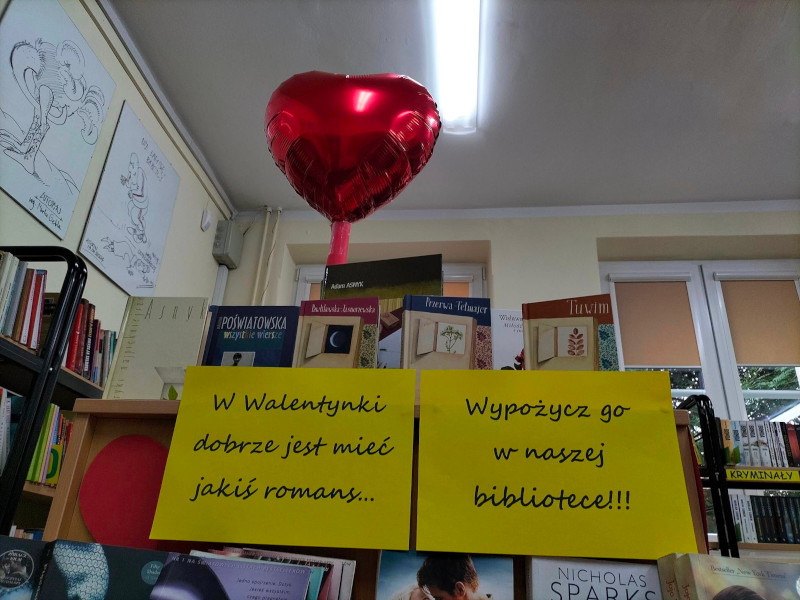 Adam ASNYK
ASNYK
POŚWIATOWSKA
wszystkie wiersze
Pawlikowska-Jasnorzewska
Przerwa-Tetmajer
Tuwim
W Walentynki
dobrze jest mieć
jakiś romans...
Wypożycz go
w naszej
bibliotece!!!
KRYMINAŁY
NICHOLAS
SPARKS